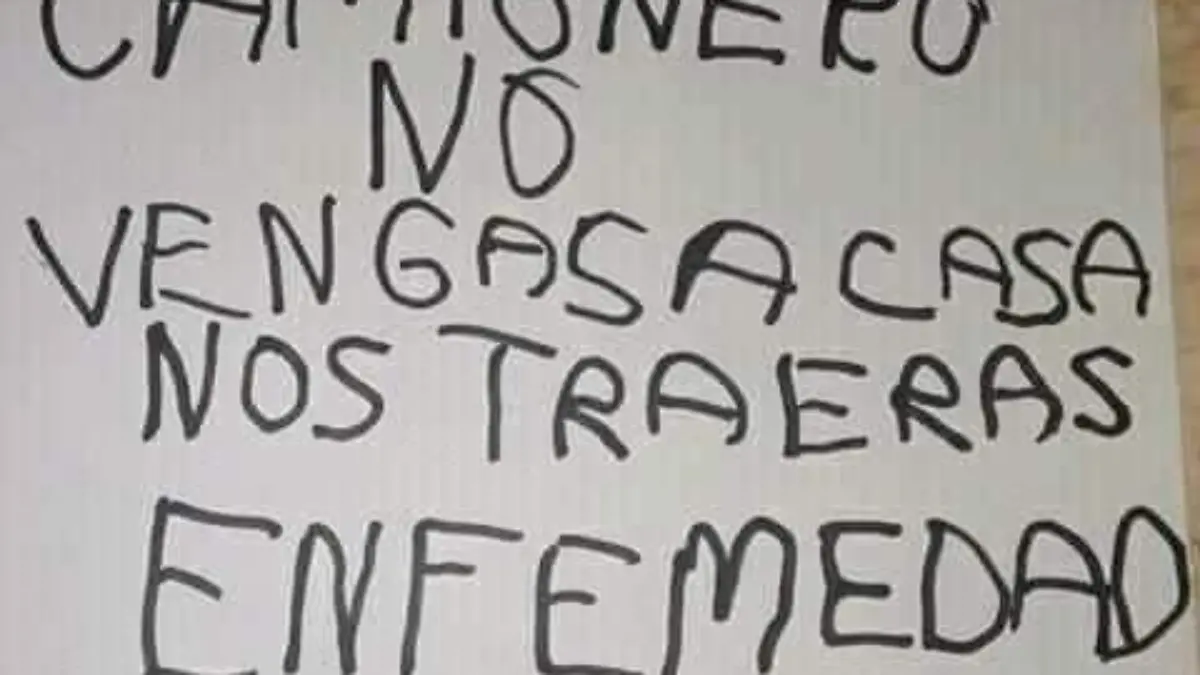 CAMIONERO
NO
VENGAS A CASA
NOS TRAERAS
ENFEMEDAD